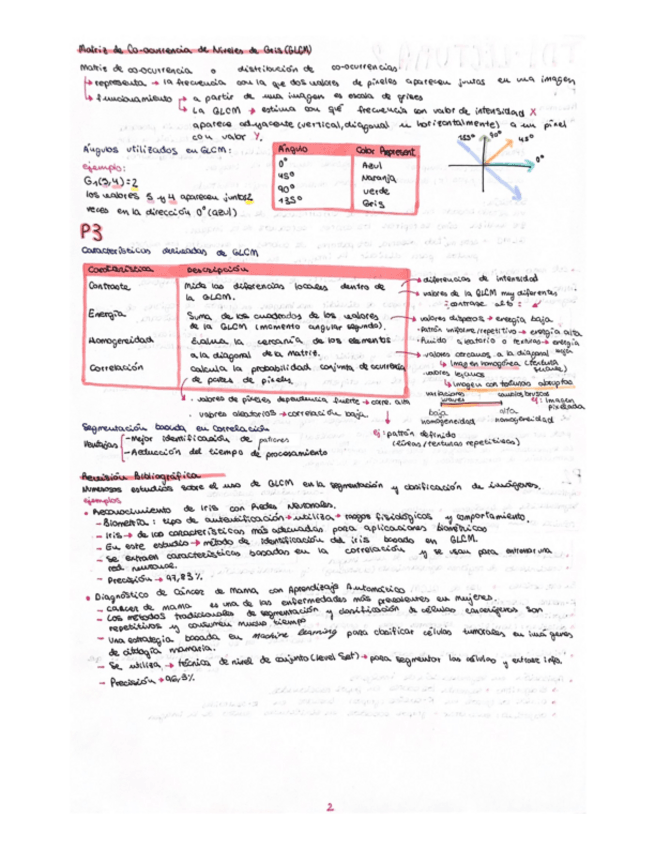 Matriz de Co-ocurrencia de Niveles de Gris (GLCM)
Matriz de co-ocurrencia o distribución de co-ocurrencias:
↳ representa → la frecuencia con la que dos valores de píxeles aparecen juntos en una imagen
↳ funcionamiento ↳ a partir de una imagen es escala de grises
↳ La GLCM → estima con qué frecuencia con valor de intensidad X
aparece adyacente (vertical, diagonal u horizontalmente) a un píxel
con valor Y.
Ángulos utilizados en GLCM:
Ángulo Color Represent
0° Azul
45° Naranja
90° verde
135° Gris
135° 90° 45°
0°
ejemplo:
G₁(3,4)=2
los valores 5 y 4 aparecen juntos 2
veces en la dirección 0° (azul)
P3
Características derivadas de GLCM
Característica Descripción
Contraste Mide las diferencias locales dentro de
la GLCM.
Energía Suma de los cuadrados de los valores
de la GLCM (momento angular segundo).
Homogeneidad Evalúa la cercanía de los elementos
a la diagonal de la matriz.
Correlación Calcula la probabilidad conjunta de ocurrencia
de pares de píxeles.
→ diferencias de intensidad
→ valores de la GLCM muy diferentes
: contraste alto :
→ valores dispersos → energía baja
- Patrón uniforme/repetitivo → energía alta
- Ruido aleatorio o texturas → energía
baja
→ valores cercanos a la diagonal
↳ Imagen homogénea (textura
suave)
valores lejanos
↳ Imagen con texturas abruptas
variaciones suaves
cambios bruscos
ej: imagen
pixelada
baja
homogeneidad
alta
homogeneidad
. valores de píxeles dependencia fuerte → corre. alta
. valores aleatorios → correlación baja.
ej: patrón definido
(líneas/texturas repetitivas)
Segmentación basada en correlación
Ventajas
- Mejor identificación de patrones
- Reducción del tiempo de procesamiento
Revisión Bibliográfica
Numerosos estudios sobre el uso de GLCM en la segmentación y clasificación de imágenes.
ejemplos
• Reconocimiento de Iris con Redes Neuronales.
- Biometría: tipo de autentificación → utiliza → rasgos fisiológicos y comportamiento.
- Iris → de las características más adecuadas para aplicaciones biométricas
- En este estudio → método de identificación del iris basado en GLCM.
- Se extraen características basadas en la correlación y se usan para entrenar una
red neuronal.
- Precisión → 97,83%.
• Diagnóstico de Cáncer de Mama con Aprendizaje Automático
- cáncer de mama es una de las enfermedades más prevalentes en mujeres.
- Los métodos tradicionales de segmentación y clasificación de células cancerígenas son
repetitivos y consumen mucho tiempo
- Una estrategia basada en Machine Learning para clasificar células tumorales en imágenes
de citología mamaria.
- Se utiliza → técnica de nivel de conjunto (level set) → para segmentar las células y extraer info.
- Precisión → 96,3%
2